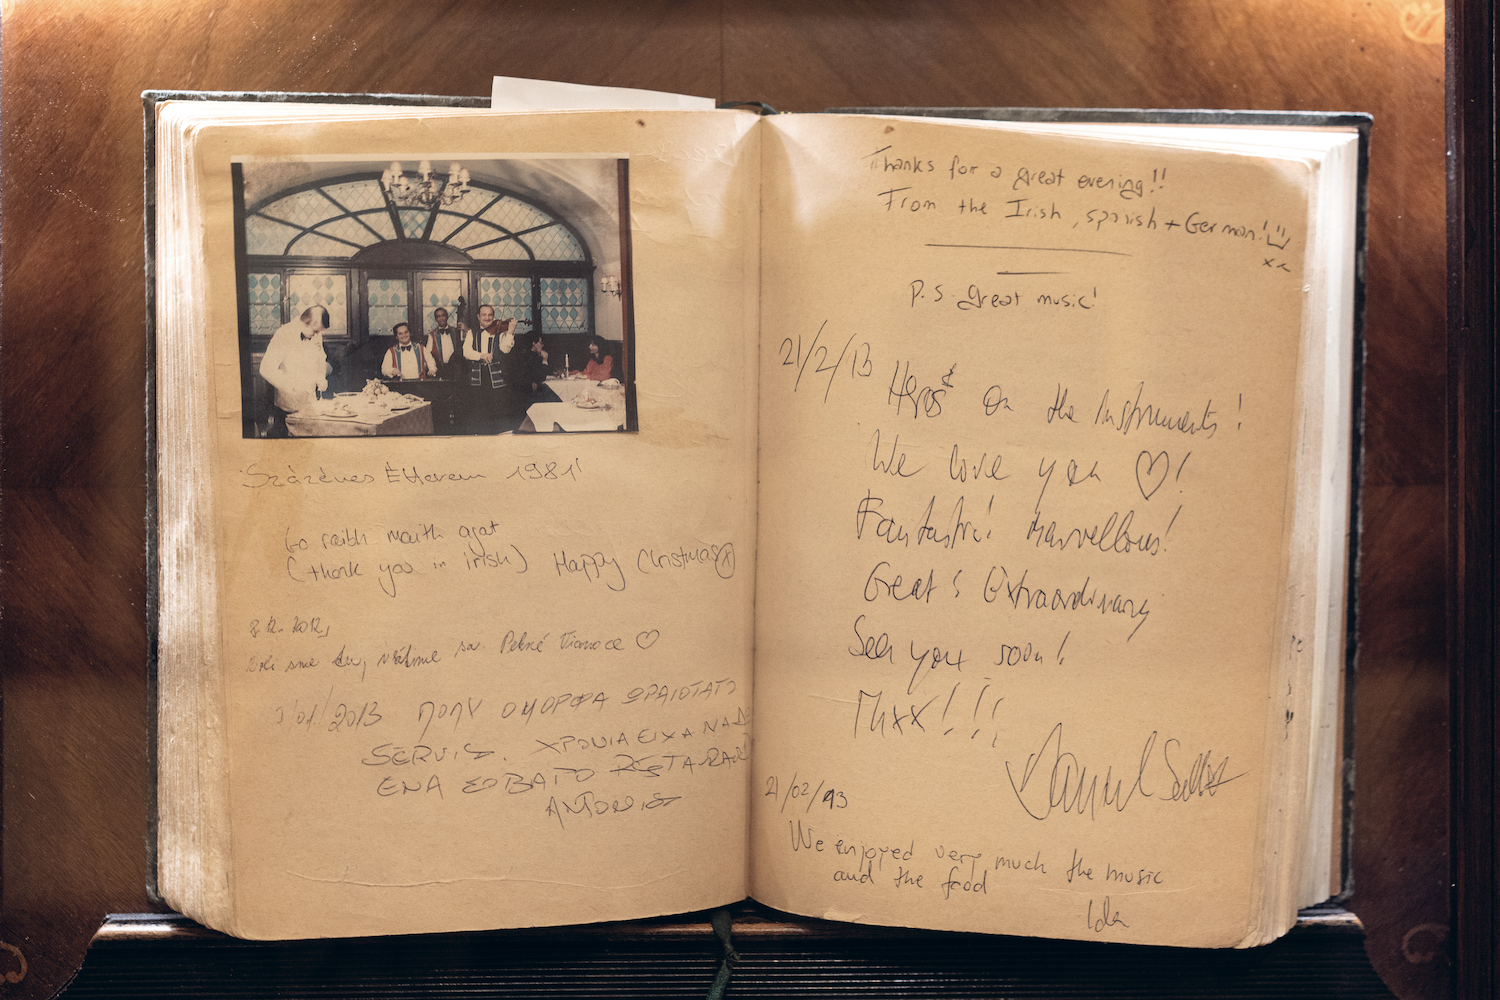 Százéves Étterem 1981'
Go raibh maith agat
(thank you in irish) Happy Christmas
8.12.2012,
sme tu, sa. Pekné Vianoce ♡
/01/2013 ΠΟΛΥ ΟΜΟΡΦΑ ΩΡΑΙΟΤΑΤΟ
SERVIS. ΧΡΟΝΙΑ ΕΙΧΑ ΝΑ Δ
ΕΝΑ ΣΟΒΑΡΟ
ΑΝΤΟΝΙΣ
Thanks for a great evening!!
From the Irish, spanish + German!
xx
P.S. great music!
21/2/13
On the Instruments!
We love you ♡!
Fantastic! Marvellous!
Great & Extraordinary
See you soon!
!!!
21/02/13
We enjoyed very much the music
and the food
Ida